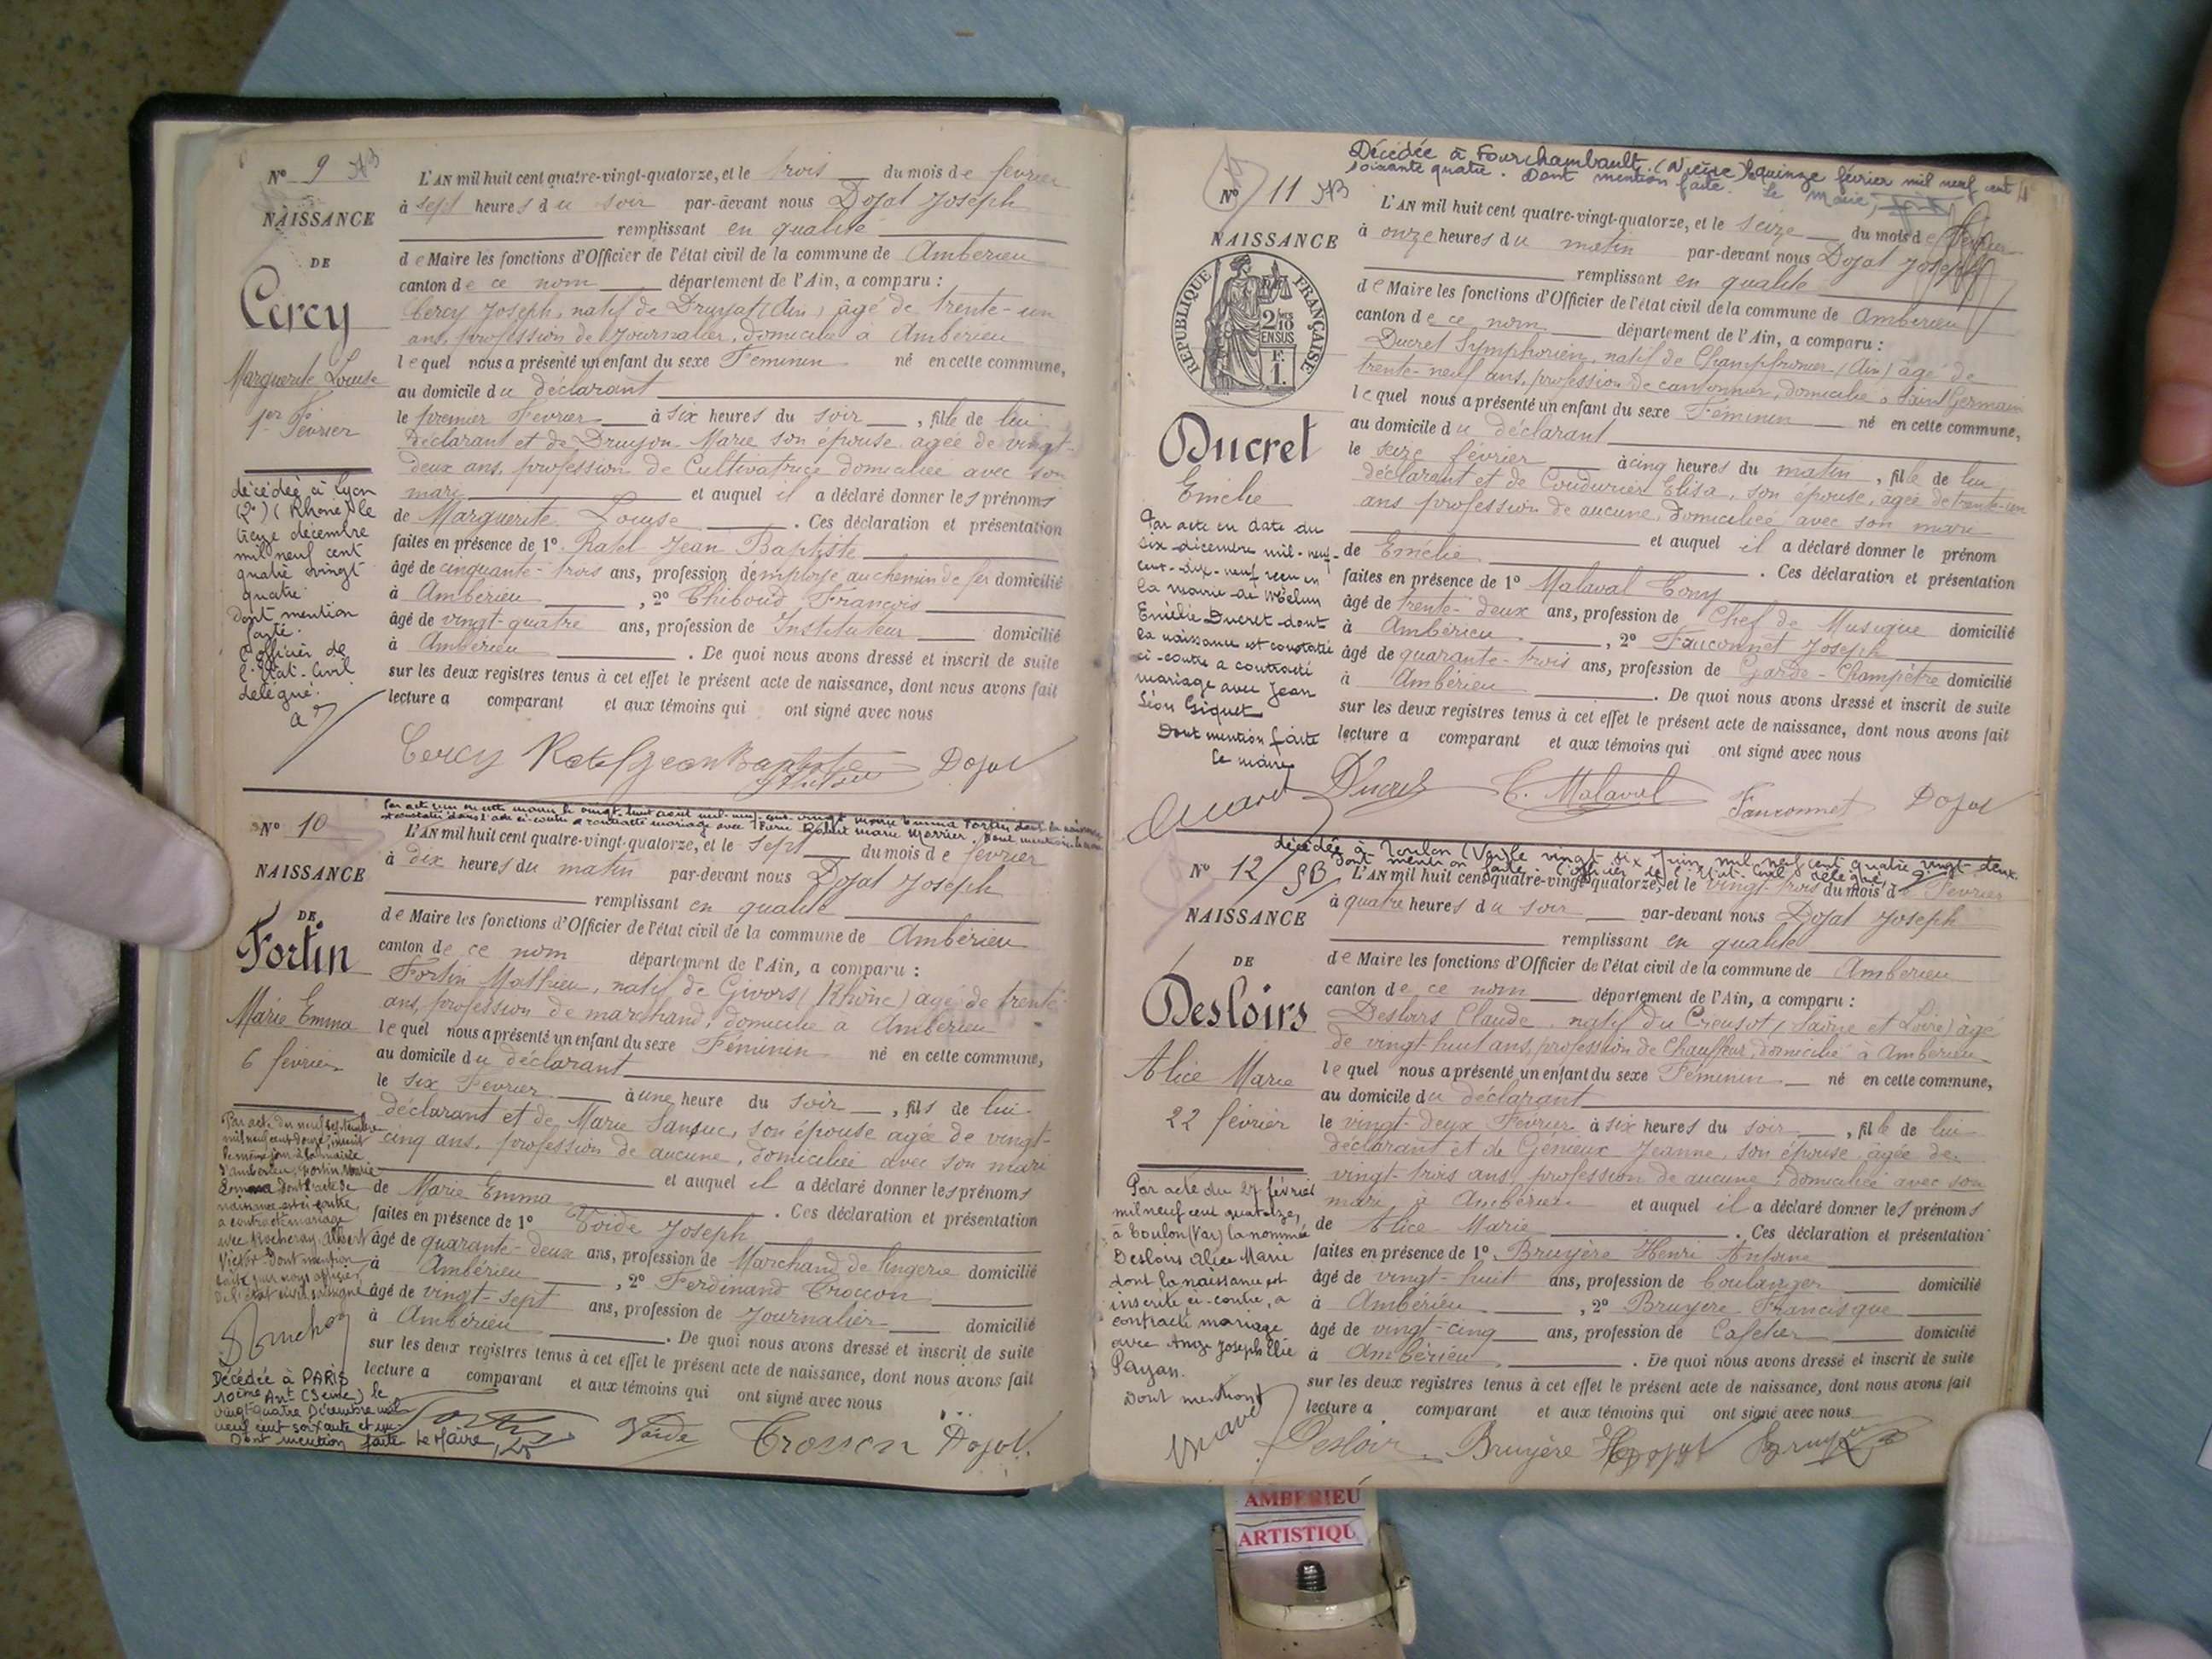 N° 9
L'AN mil huit cent quatre-vingt-quatorze, et le trois du mois de février
à sept heures du soir par-devant nous Dojat Joseph
NAISSANCE
remplissant en qualité
DE
de Maire les fonctions d'Officier de l'état civil de la commune de Ambérieu
canton de ce nom département de l'Ain, a comparu :
Cercy
Cercy Joseph, natif de Druyat (Ain) âgé de trente-un
ans, profession de Journalier, domicilié à Ambérieu
Marguerite Louise
lequel nous a présenté un enfant du sexe Féminin né en cette commune,
au domicile du déclarant
1er Février
le premier Février à six heures du soir, fille de lui
déclarant et de Druyon Marie son épouse âgée de vingt-
deux ans, profession de Cultivatrice domiciliée avec son
mari et auquel il a déclaré donner les prénoms
de Marguerite Louise. Ces déclaration et présentation
faites en présence de 1° Ratel Jean Baptiste
âgé de cinquante-trois ans, profession d'employé au chemin de fer domicilié
à Ambérieu, 2° Thiboud François
âgé de vingt-quatre ans, profession de Instituteur domicilié
à Ambérieu. De quoi nous avons dressé et inscrit de suite
sur les deux registres tenus à cet effet le présent acte de naissance, dont nous avons fait
lecture a comparant et aux témoins qui ont signé avec nous
décédée à Lyon
(2e) (Rhône) le
treize décembre
mil neuf cent
quatre vingt
quatre.
Dont mention
faite.
L'officier de
l'État-Civil
délégué.
Cercy Ratel Jean Baptiste Dojat
N° 10
L'AN mil huit cent quatre-vingt-quatorze, et le sept du mois de février
à dix heures du matin par-devant nous Dojat Joseph
NAISSANCE
remplissant en qualité
DE
de Maire les fonctions d'Officier de l'état civil de la commune de Ambérieu
Fortin
canton de ce nom département de l'Ain, a comparu :
Fortin Mathieu, natif de Givors (Rhône) âgé de trente
ans, profession de marchand, domicilié à Ambérieu
Marie Emma
lequel nous a présenté un enfant du sexe Féminin né en cette commune,
au domicile du déclarant
6 février
le six Février à une heure du soir, fils de lui
déclarant et de Marie Sansuc, son épouse âgée de vingt-
cinq ans, profession de aucune, domiciliée avec son mari
et auquel il a déclaré donner les prénoms
de Marie Emma. Ces déclaration et présentation
faites en présence de 1° Voide Joseph
âgé de quarante-deux ans, profession de Marchand de lingerie domicilié
à Ambérieu, 2° Ferdinand Croccon
âgé de vingt-sept ans, profession de Journalier domicilié
à Ambérieu. De quoi nous avons dressé et inscrit de suite
sur les deux registres tenus à cet effet le présent acte de naissance, dont nous avons fait
lecture a comparant et aux témoins qui ont signé avec nous
Par acte du neuf septembre
mil neuf cent douze, inscrit
le même jour à la mairie
d'Ambérieu, Fortin Marie
Emma dont l'acte de
naissance est ci-contre,
a contracté mariage
avec Rocheray Albert
Victor. Dont mention
faite par nous officier
de l'état civil soussigné
Décédée à PARIS
10ème Art (Seine) le
vingt-quatre Décembre mil
neuf cent soixante et un
Dont mention faite Le Maire,
Voide Dojat
Décédée à Fourchambault (Nièvre) le quinze février mil neuf cent
soixante quatre. Dont mention faite. Le Maire,
N° 11
L'AN mil huit cent quatre-vingt-quatorze, et le seize du mois de février
NAISSANCE
à onze heures du matin par-devant nous Dojat Joseph
remplissant en qualité
RÉPUBLIQUE FRANÇAISE
2/10
EN SUS
F.
1.
de Maire les fonctions d'Officier de l'état civil de la commune de Ambérieu
canton de ce nom département de l'Ain, a comparu :
Ducret Symphorien, natif de Champfromier (Ain) âgé de
trente-neuf ans, profession de cantonnier, domicilié à Saint Germain
lequel nous a présenté un enfant du sexe Féminin né en cette commune,
au domicile du déclarant
Ducret
le seize février à cinq heures du matin, fille de lui
déclarant et de Coudurier Elisa, son épouse, âgée de trente-un
Emélie
ans profession de aucune, domiciliée avec son mari
et auquel il a déclaré donner le prénom
de Emélie. Ces déclaration et présentation
faites en présence de 1° Malaval Tony
âgé de trente-deux ans, profession de Chef de Musique domicilié
à Ambérieu, 2° Fauconnet Joseph
âgé de quarante-trois ans, profession de Garde-Champêtre domicilié
à Ambérieu. De quoi nous avons dressé et inscrit de suite
sur les deux registres tenus à cet effet le présent acte de naissance, dont nous avons fait
lecture a comparant et aux témoins qui ont signé avec nous
Par acte en date du
six décembre mil-neuf-
cent-dix-neuf reçu en
la mairie de Melun
Emélie Ducret dont
la naissance est constatée
ci-contre a contracté
mariage avec Jean
Léon Giquet
Dont mention faite
Le maire
Ducret T. Malaval Fauconnet Dojat
décédée à Toulon (Var) le vingt six Juin mil neuf cent quatre vingt deux.
Dont mention faite. L'officier de l'État Civil délégué,
N° 12
L'AN mil huit cent quatre-vingt-quatorze, et le vingt-trois du mois de Février
NAISSANCE
à quatre heures du soir par-devant nous Dojat Joseph
remplissant en qualité
DE
de Maire les fonctions d'Officier de l'état civil de la commune de Ambérieu
canton de ce nom département de l'Ain, a comparu :
Desloirs
Desloirs Claude, natif du Creusot (Saône et Loire) âgé
de vingt huit ans, profession de Chauffeur, domicilié à Ambérieu
Alice Marie
lequel nous a présenté un enfant du sexe Féminin né en cette commune,
au domicile du déclarant
22 février
le vingt-deux Février à six heures du soir, fille de lui
déclarant et de Génieux Jeanne, son épouse âgée de
vingt-trois ans, profession de aucune, domiciliée avec son
mari à Ambérieu et auquel il a déclaré donner les prénoms
de Alice Marie. Ces déclaration et présentation
faites en présence de 1° Bruyère Henri Antoine
âgé de vingt-huit ans, profession de boulanger domicilié
à Ambérieu, 2° Bruyère Francisque
âgé de vingt-cinq ans, profession de Cafetier domicilié
à Ambérieu. De quoi nous avons dressé et inscrit de suite
sur les deux registres tenus à cet effet le présent acte de naissance, dont nous avons fait
lecture a comparant et aux témoins qui ont signé avec nous
Par acte du 27 février
mil neuf cent quatorze,
à Toulon (Var) la nommée
Desloirs Alice Marie
dont la naissance est
inscrite ci-contre, a
contracté mariage
avec Ange Joseph Elie
Payan.
Dont mention
Desloir Bruyère H Dojat Bruyère
AMBERIEU
ARTISTIQU